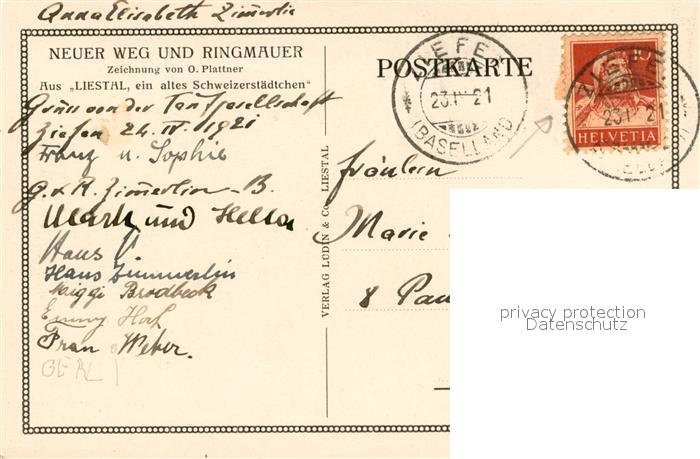 Anna Elisabeth Zimmerlin
NEUER WEG UND RINGMAUER
Zeichnung von O. Plattner
Aus „LIESTAL, ein altes Schweizerstädtchen“
Gruss von der Taufgesellschaft
Ziefen 24. IV. 1921
Franz u. Sophie
G. & M. Zimmerlin-B.
und Hella
Hans V.
Hans Zimmerlin
Miggi Brodbeck
Emmy Hoch
Frau Weber.
VERLAG LÜDIN & Co., LIESTAL
POSTKARTE
ZIEFEN
23.IV.21
(BASELLAND)
ZIEFEN
23.IV.21
HELVETIA
Fräulein
Marie
8 Pau
privacy protection
Datenschutz